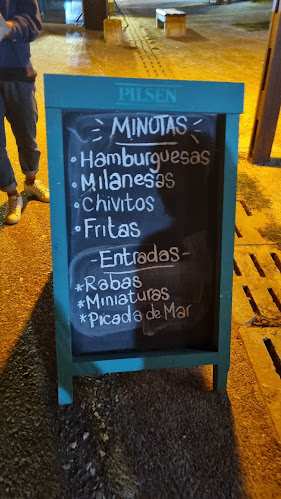 PILSEN
MINUTAS
• Hamburguesas
• Milanesas
• Chivitos
• Fritas
- Entradas -
* Rabas
* Miniaturas
* Picada de Mar